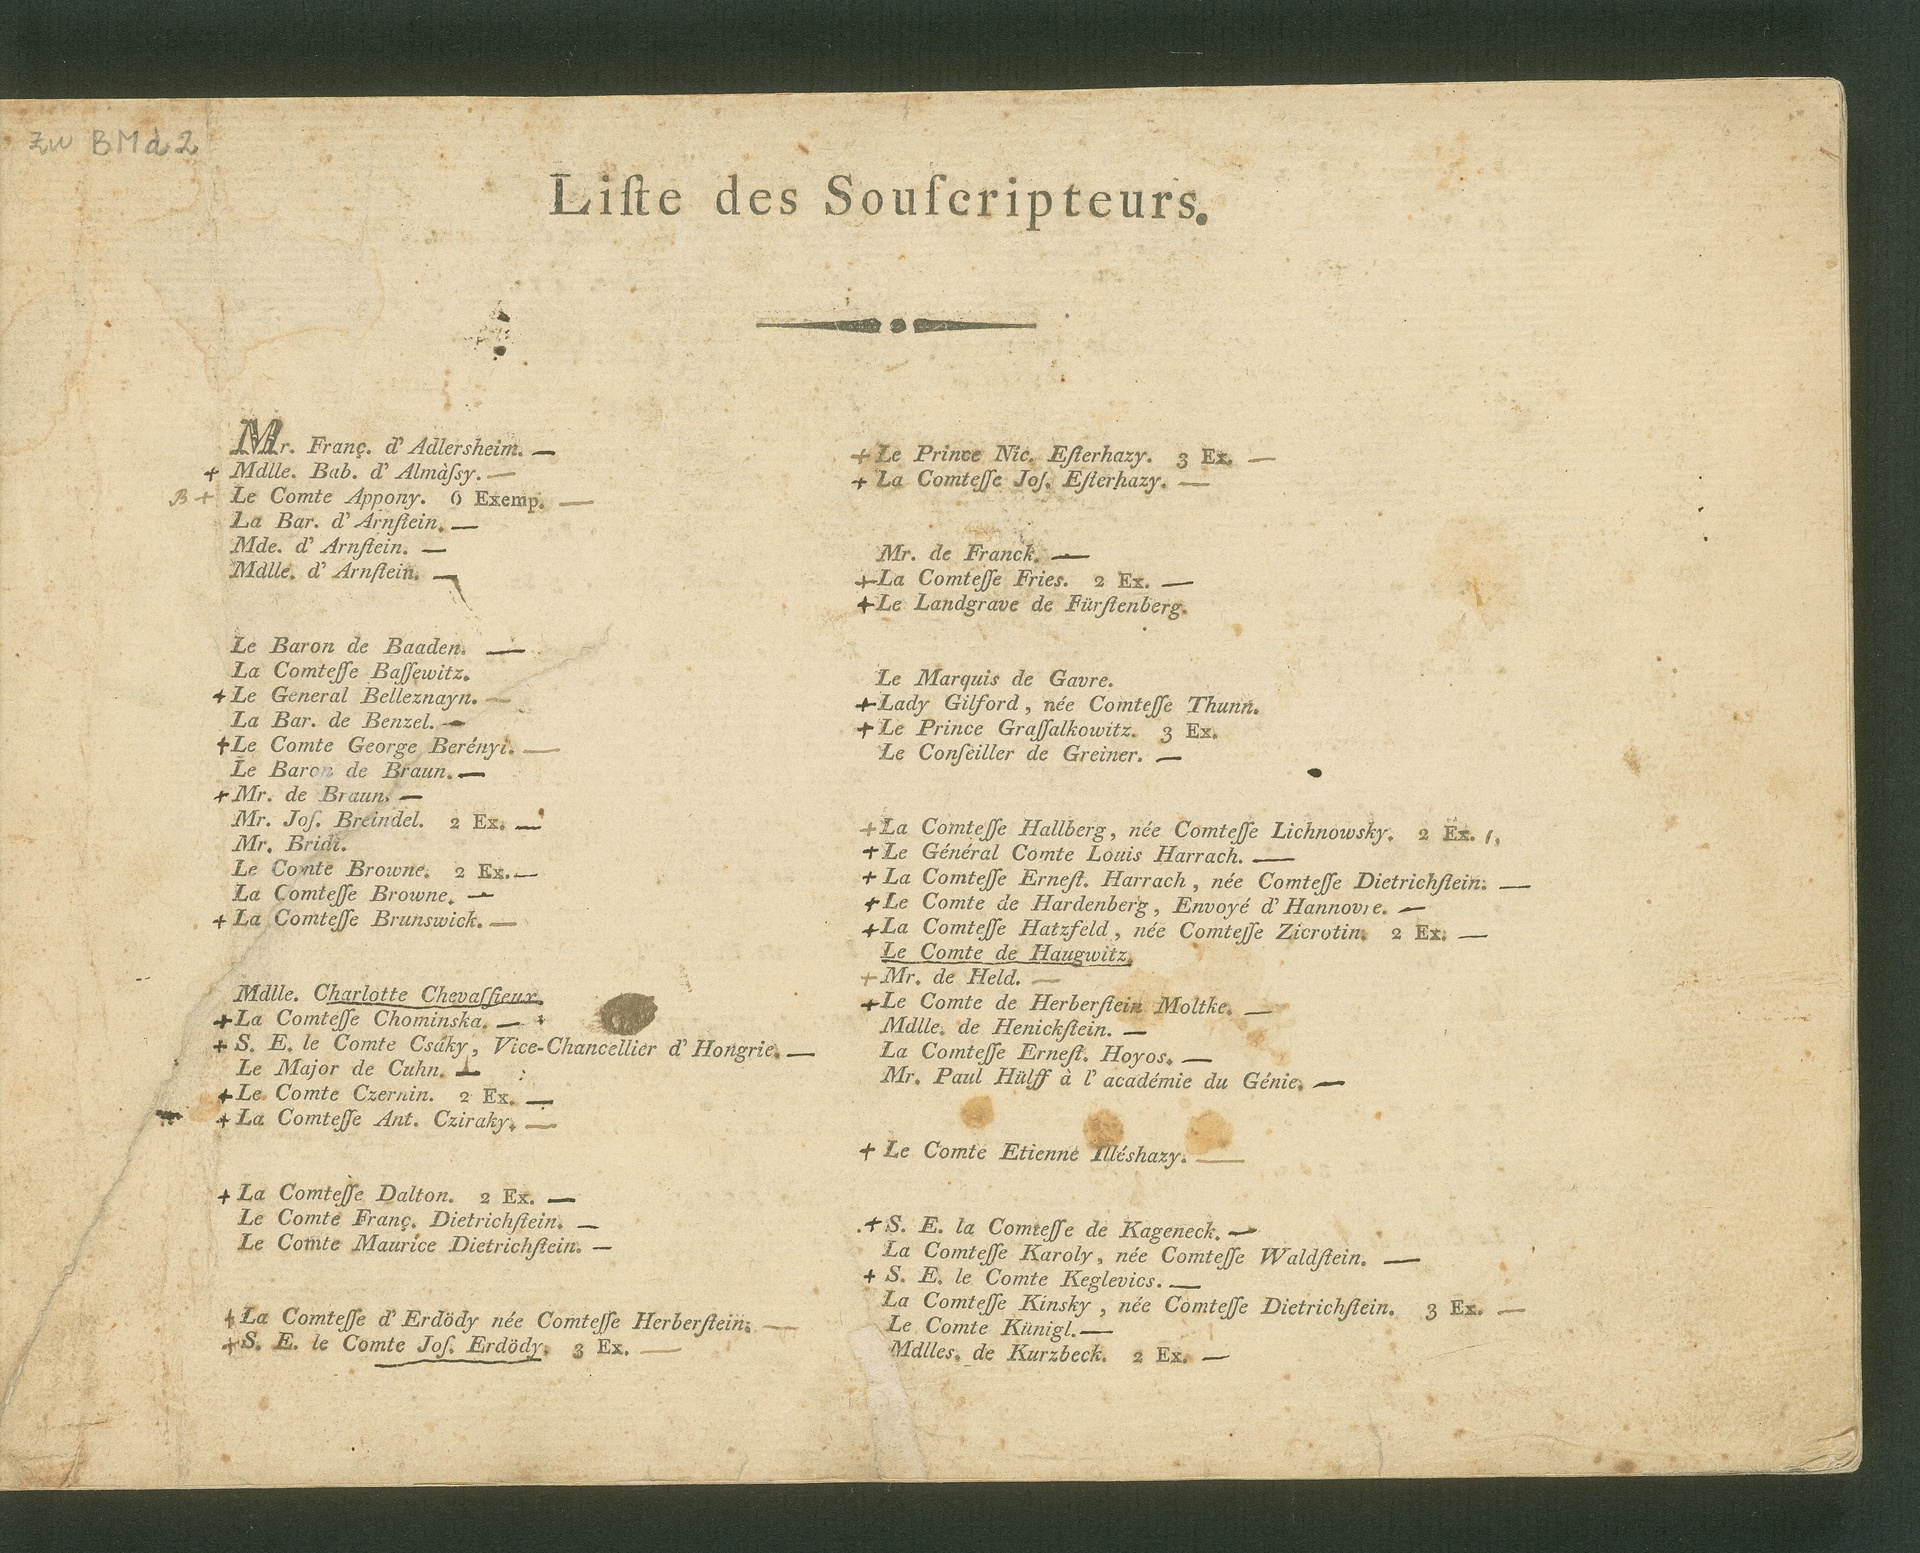 Zu BMd2
Liſte des Souſcripteurs.
Mr. Franç. d' Adlersheim. —
+ Mdlle. Bab. d' Almàſsy. —
B + Le Comte Appony. 6 Exemp. —
La Bar. d' Arnſtein. —
Mde. d' Arnſtein. —
Mdlle. d' Arnſtein. —
Le Baron de Baaden. —
La Comteſſe Baſſewitz.
+ Le General Belleznayn. —
La Bar. de Benzel. —
+ Le Comte George Berényi. —
Le Baron de Braun. —
+ Mr. de Braun. —
Mr. Joſ. Breindel. 2 Ex. —
Mr. Bridi.
Le Comte Browne. 2 Ex. —
La Comteſſe Browne. —
+ La Comteſſe Brunswick. —
Mdlle. Charlotte Chevaſſieux.
+ La Comteſſe Chominska. —
+ S. E. le Comte Csáky, Vice-Chancellier d' Hongrie. —
Le Major de Cuhn. —
+ Le Comte Czernin. 2 Ex. —
+ La Comteſſe Ant. Cziraky. —
+ La Comteſſe Dalton. 2 Ex. —
Le Comte Franç. Dietrichſtein. —
Le Comte Maurice Dietrichſtein. —
+ La Comteſſe d' Erdödy née Comteſſe Herberſtein. —
+ S. E. le Comte Joſ. Erdödy. 3 Ex. —
+ Le Prince Nic. Eſterhazy. 3 Ex. —
+ La Comteſſe Joſ. Eſterhazy. —
Mr. de Franck. —
+ La Comteſſe Fries. 2 Ex. —
+ Le Landgrave de Fürſtenberg.
Le Marquis de Gavre.
+ Lady Gilford, née Comteſſe Thunn.
+ Le Prince Graſſalkowitz. 3 Ex.
Le Conſeiller de Greiner. —
+ La Comteſſe Hallberg, née Comteſſe Lichnowsky. 2 Ex.
+ Le Général Comte Louis Harrach. —
+ La Comteſſe Erneſt. Harrach, née Comteſſe Dietrichſtein. —
+ Le Comte de Hardenberg, Envoyé d' Hannovre. —
+ La Comteſſe Hatzfeld, née Comteſſe Zicrotin. 2 Ex. —
Le Comte de Haugwitz.
+ Mr. de Held. —
+ Le Comte de Herberſtein Moltke. —
Mdlle. de Henickſtein. —
La Comteſſe Erneſt. Hoyos. —
Mr. Paul Hülff à l' académie du Génie. —
+ Le Comte Etienne Illéshazy. —
+ S. E. la Comteſſe de Kageneck. —
La Comteſſe Karoly, née Comteſſe Waldſtein. —
+ S. E. le Comte Keglevics. —
La Comteſſe Kinsky, née Comteſſe Dietrichſtein. 3 Ex. —
Le Comte Künigl. —
Mdlles. de Kurzbeck. 2 Ex. —